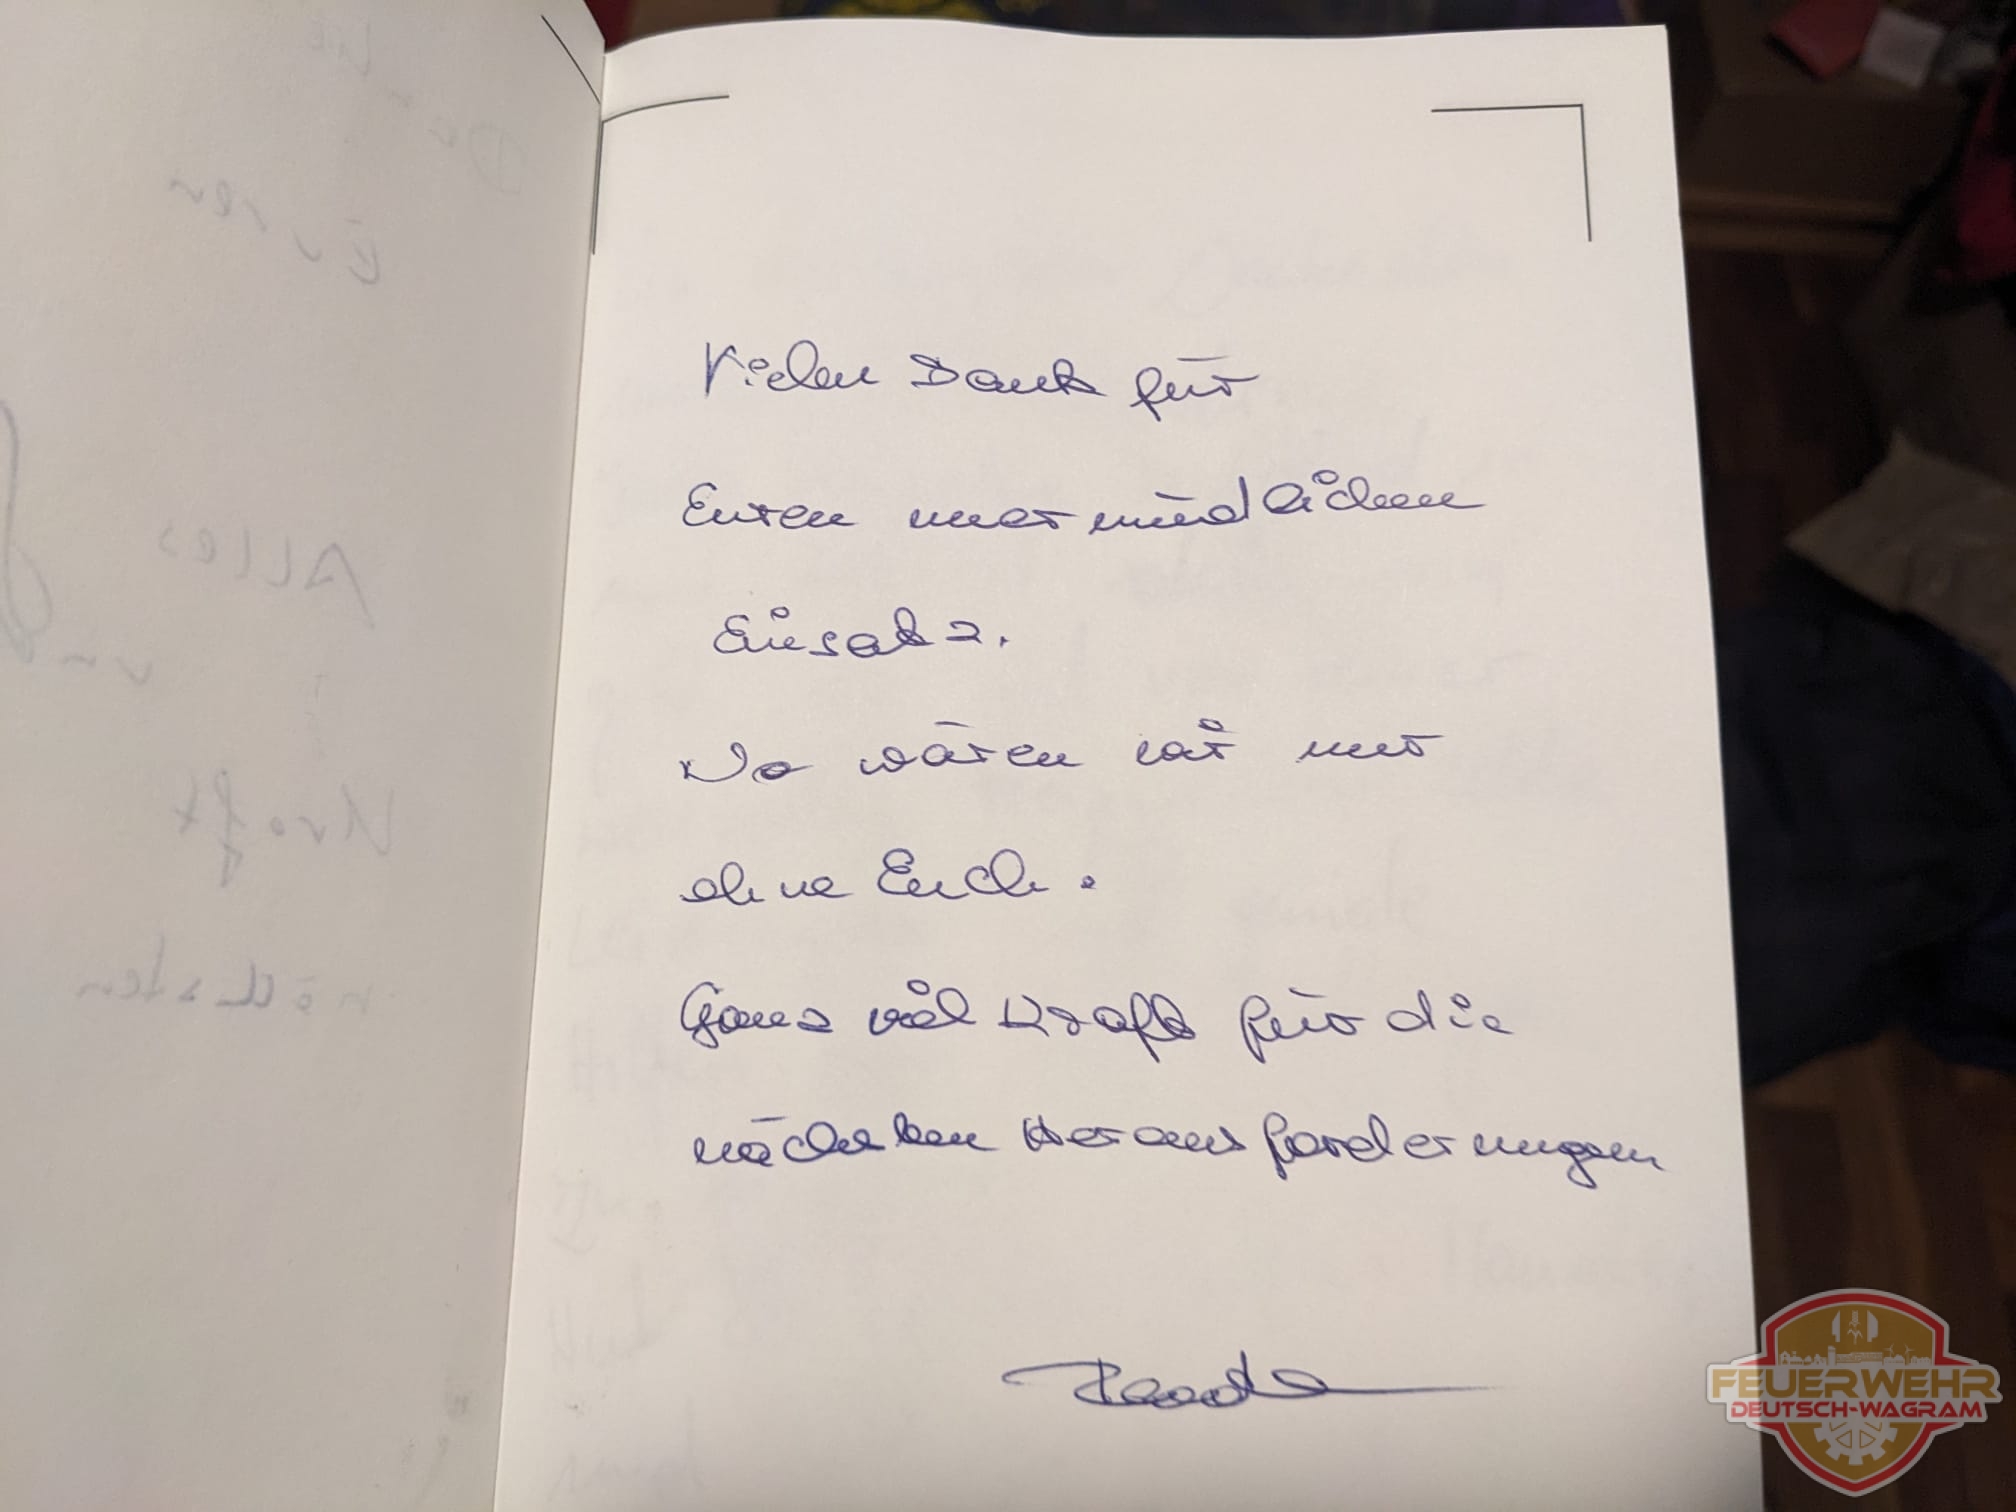 Euren
Alles
Kraft
nächsten
Vielen Dank für
Euren unermüdlichen
Einsatz.
Wo wären wir nur
ohne Euch.
Ganz viel Kraft für die
nächsten Herausforderungen
FEUERWEHR
DEUTSCH-WAGRAM